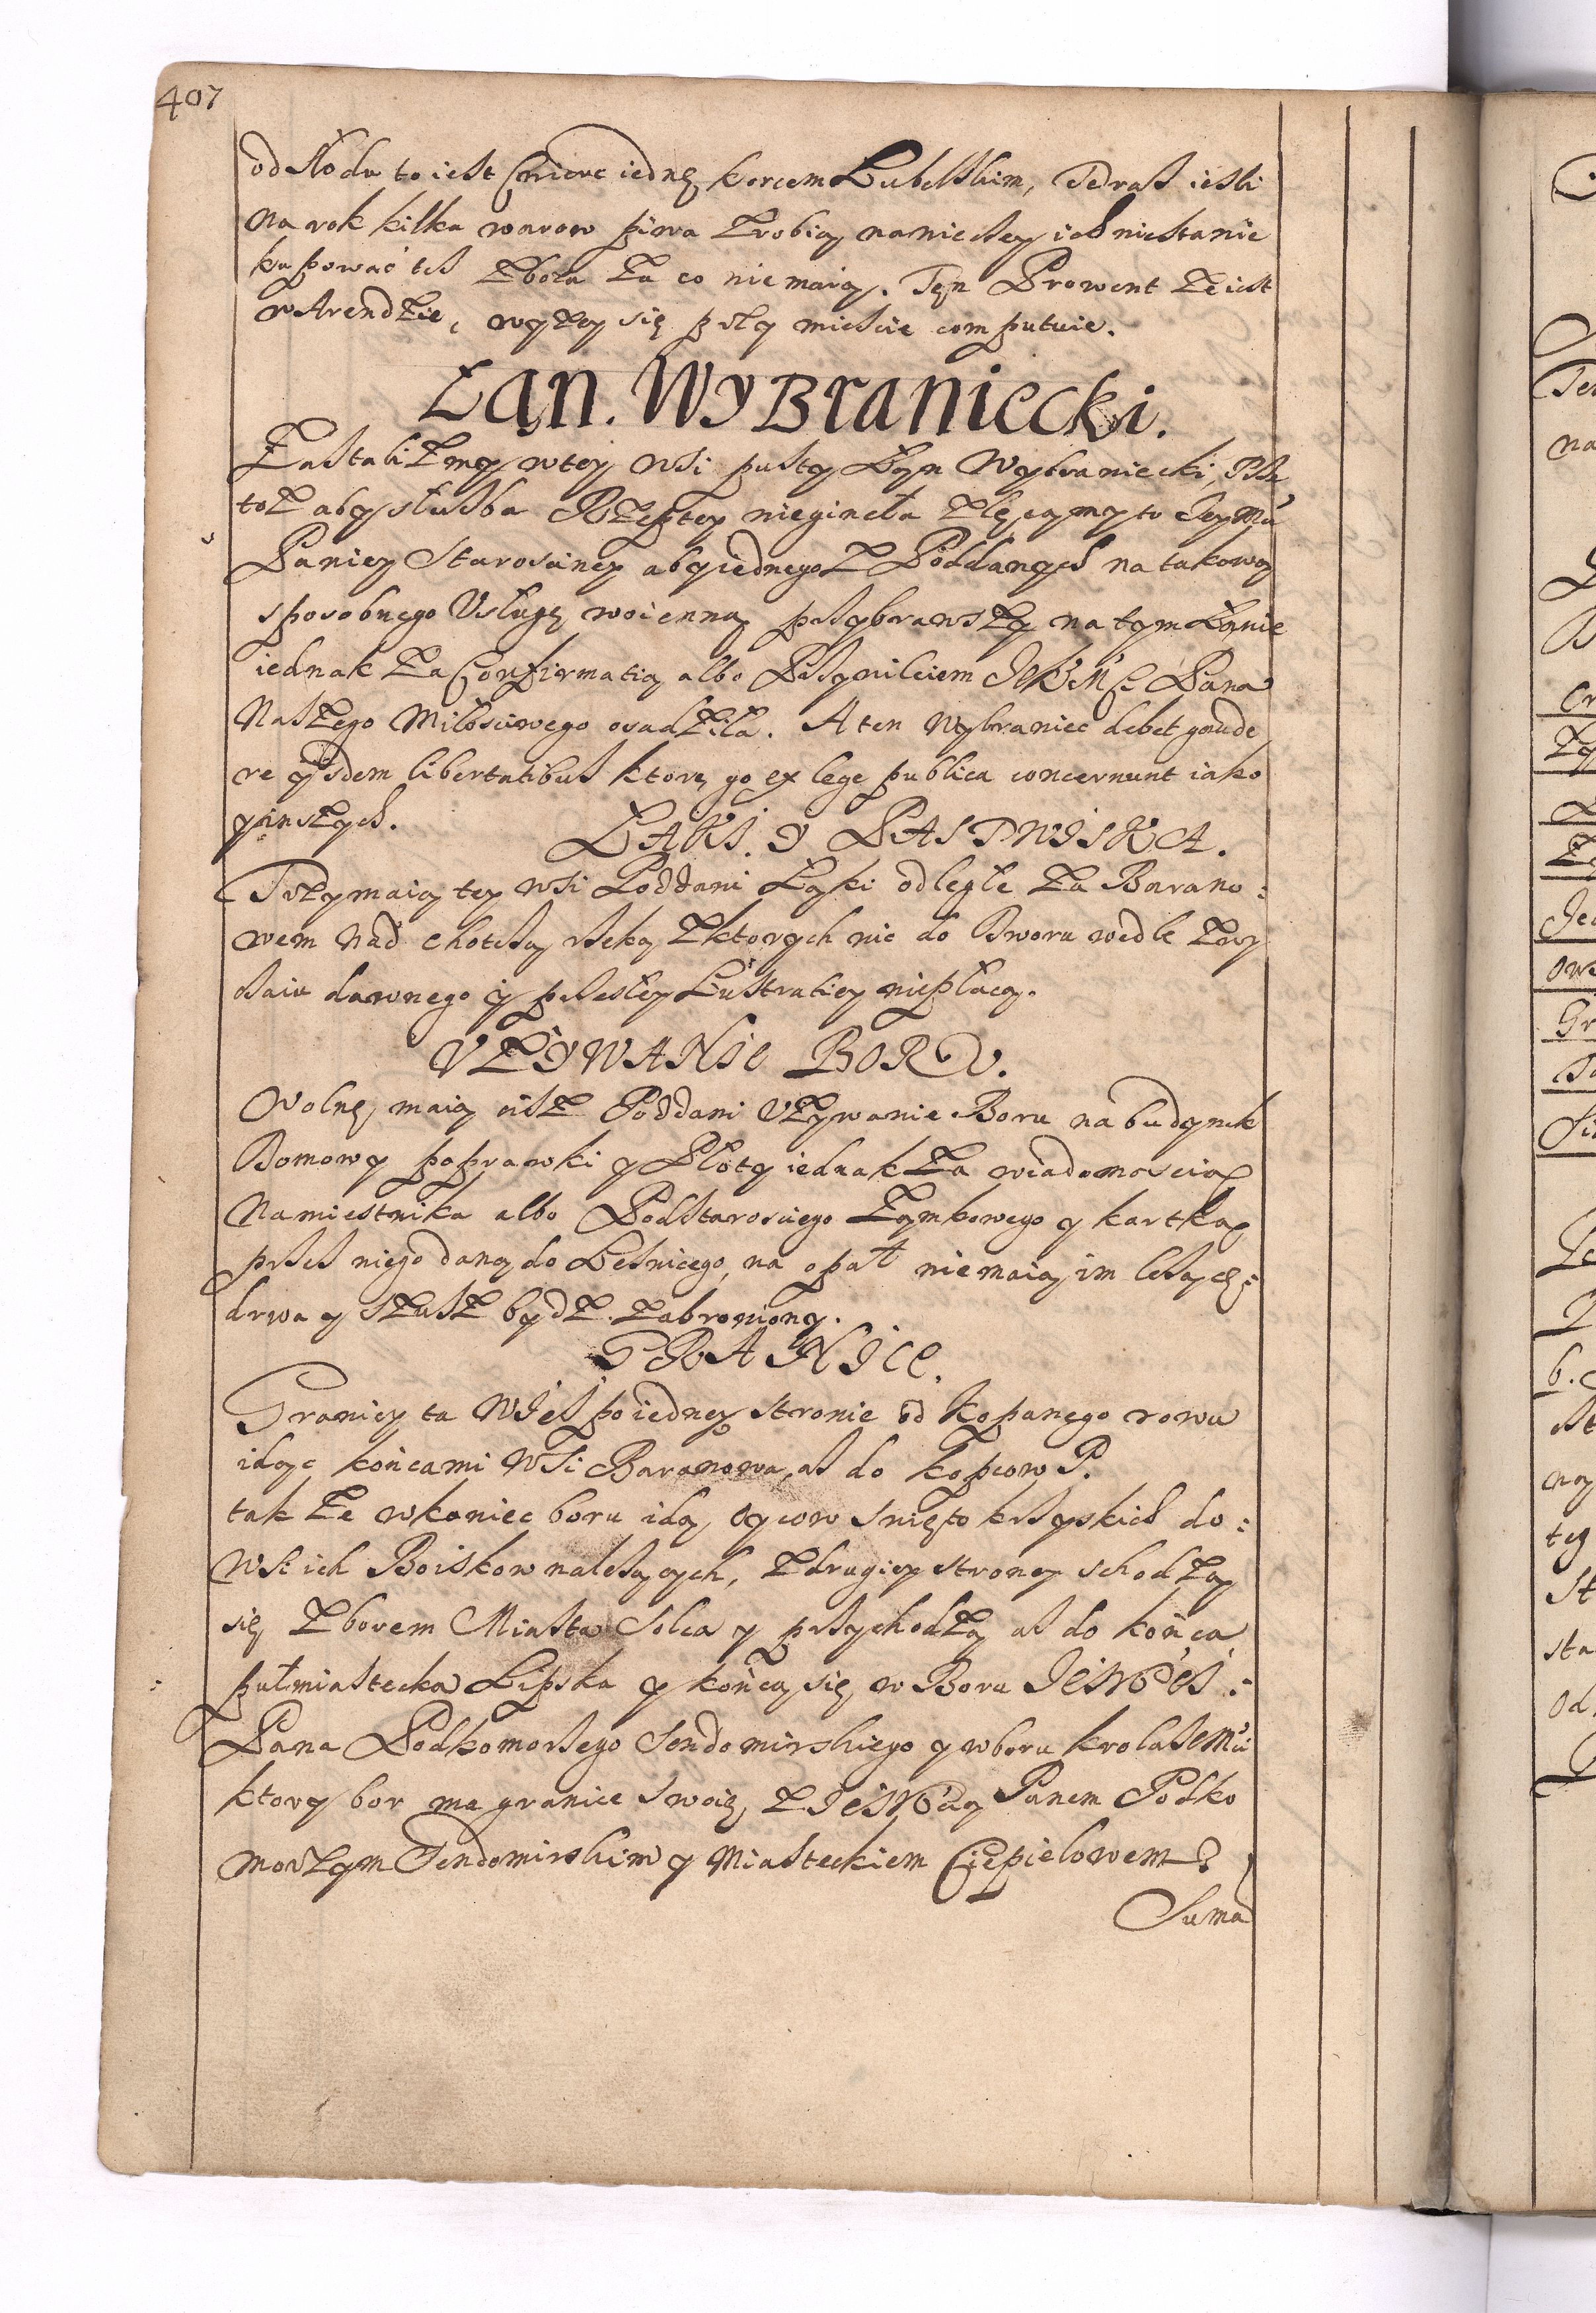 407
od słodu to iest cwierc iednę korcem Lubelskim, Tedrasz iesli
na rok kilka warow piwa zrobią na wiecszey ich niestanie
kupować tesz zboza za co nie maią. Ten Prowent ze iest
w Arendzie, wyzey się przy miescie computuie.
Łan. Wybraniecki.
Zastalizmy w tey wsi pusty Łan Wybraniecki, Prze
toz aby słuzba Rzeptey niegineła zlecamy to Jey Mci
Paniey Starosciney aby iednego z Poddanych na takową
sposobnego Usługę woienną przybrawszy na tym Łanie
iednak za Confirmatią albo Przywileiem JKrMci Pana
Naszego Miłosciwego osadziła. A ten Wybraniec debet gaude
re ijsdem libertatibus ktore go ex lege publica concernunt iako
y inszych.
ŁAKI. Y PASTWISKA.
Trzymaią tey wsi Poddani Łąki odległe za Barano:
wem nad chotczą rzeką z ktorych nic do Dworu wedle zwy
czaiu dawnego y przeszłey Lustratiey niepłacą.
UZYWANIE BORU.
Wolne maią ciz Poddani Uzywanie Boru na budynek
Domowy poprawki y Płoty iednak za wiadomoscią
Namiestnika albo Podstarosciego Zamkowego y kartką
przez niego daną do Lesnicego, na opał nie maią im lezące:
drwa y szusz bydz zabroniony.
GRANICE.
Graniczy ta Wies po iedney stronie od kopanego rowu
idąc końcami wsi Baranowa, asz do kopcow P.
tak ze w koniec boru idą Oycow swięto krzyskich do:
wsi ich Boiskow nalezących, z drugiey strony schodzą
się z borem Miasta Solca y przychodzą asz do końca
puł miastecka Lipska y kończą się w Boru JeWMci:
Pana Podkomorzego Sendomirskiego y w boru krola JeMci
ktory bor ma granice swoie z JeWMcią Panem Podko
morzym Sendomirskim y Miasteckiem Ciepielowem
Suma